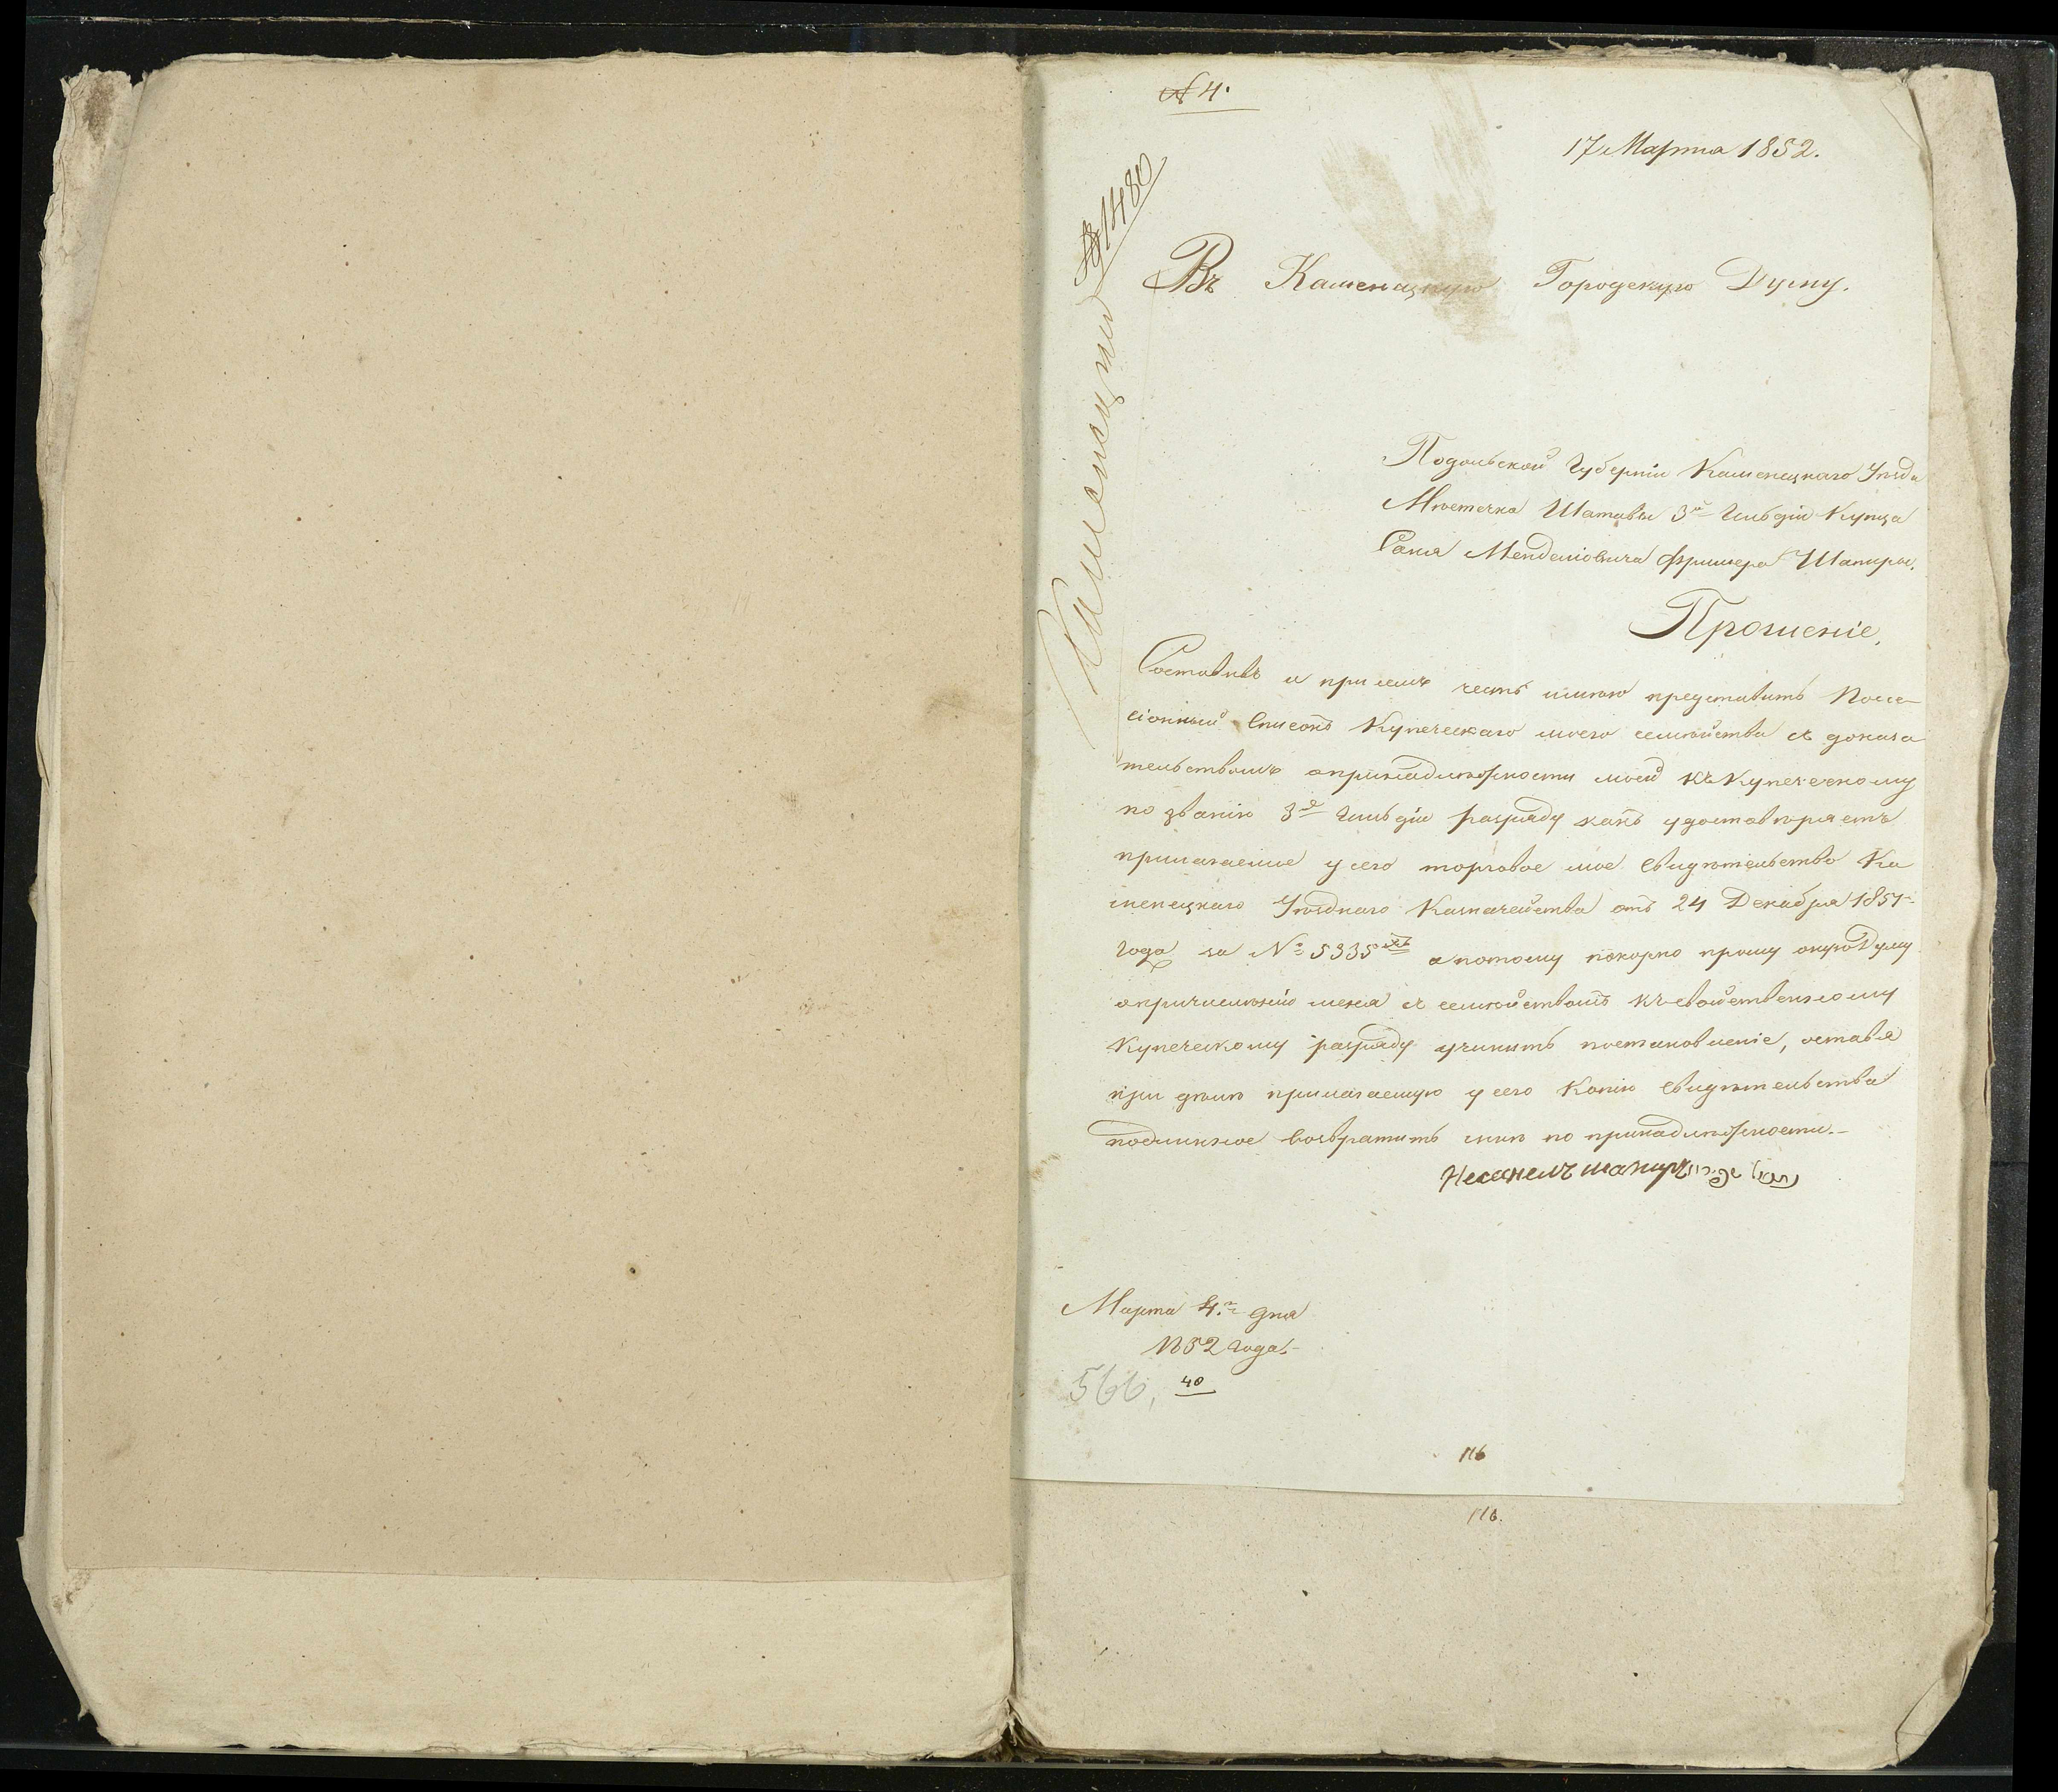 № 4.
17 Марта 1852.
№ 1480
Каменецкий
Въ Каменецкую Городскую Думу.
Подольской Губерніи Каменецкаго Уѣзда
Мѣстечка Шатавы 3й Гильдіи Купца
Менделіовича Шапиры.
Прошеніе.
Составивъ и при семъ честь имѣю представить
Списокъ Купеческаго моего семѣйства съ доказа
тельствомъ опринадлѣжности моей къ Купеческому
по званію 3й Гильдіи разряду какъ удостовѣряетъ
прилагаемое у сего торговое мое Свидѣтельство Ка
менецкаго Уѣзднаго Казначейства отъ 24 Декабря 1851
года за № 5335 а потому покорно прошу оную Думу
опричисленію меня съ семѣйствомъ къ свойственному
Купеческому разряду учинить постановленіе, оставя
при дѣлѣ прилагаемую у сего Копію Свидѣтельства
подлинное возвратить мнѣ по принадлѣжности.
шапиръ
Марта 4. дня
1852 года.
566, 40
116
116.